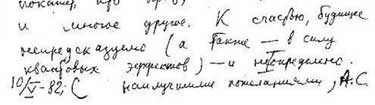 и многое другое. К счастью, будущее
непредсказуемо (а также — в силу
квантовых эффектов) — и неопределено.
10/V-82. С наилучшими пожеланиями, А.С.